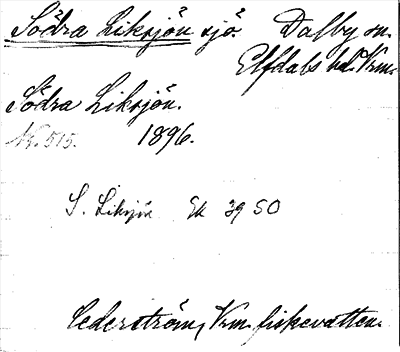 Södra Liksjön sjö Dalby sn.
Elfdals hd. Vrm.
Södra Liksjön.
N. 515. 1896.
S. Liksjön Ek 39 50
Cederström, Vrm. fiskevatten.